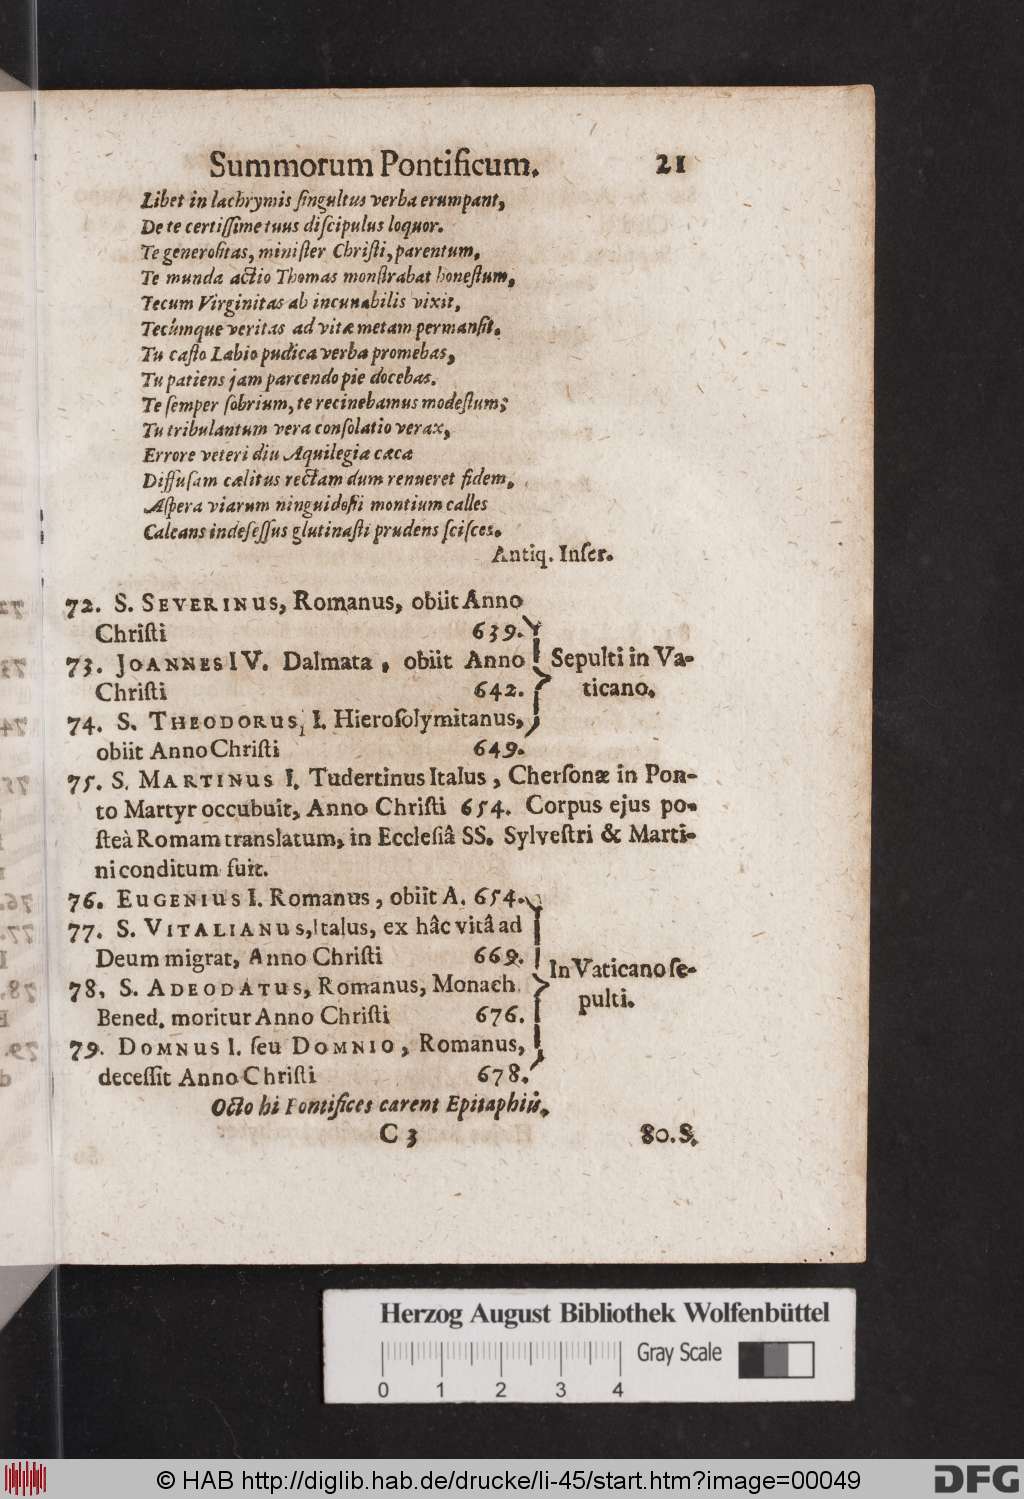 Summorum Pontificum. 21
Libet in lachrymis ſingultus verba erumpant,
De te certiſſime tuus diſcipulus loquor.
Te generoſitas, miniſter Chriſti, parentum,
Te munda actio Thomas monſtrabat honeſtum,
Tecum Virginitas ab incunabilis vixit,
Tecúmque veritas ad vitæ metam permanſit.
Tu caſto Labio pudica verba promebas,
Tu patiens jam parcendo pie docebas.
Te ſemper ſobrium, te recinebamus modeſtum;
Tu tribulantum vera conſolatio verax,
Errore veteri diu Aquilegia cæca
Diffuſam cælitus rectam dum renueret fidem,
Aſpera viarum ninguidoſii montium calles
Calcans indefeſſus glutinaſti prudens ſciſces.
Antiq. Inſcr.
72. S. SEVERINUS, Romanus, obiit Anno
Chriſti 639.
73. JOANNES IV. Dalmata, obiit Anno
Chriſti 642.
74. S. THEODORUS, I. Hieroſolymitanus,
obiit Anno Chriſti 649.
Sepulti in Va-
ticano.
75. S. MARTINUS I. Tudertinus Italus, Cherſonæ in Pon-
to Martyr occubuit, Anno Chriſti 654. Corpus ejus po-
ſteà Romam translatum, in Eccleſiâ SS. Sylveſtri & Marti-
ni conditum fuit.
76. EUGENIUS I. Romanus, obiit A. 654.
77. S. VITALIANUS, Italus, ex hâc vitâ ad
Deum migrat, Anno Chriſti 669.
78. S. ADEODATUS, Romanus, Monach.
Bened. moritur Anno Chriſti 676.
79. DOMNUS I. ſeu DOMNIO, Romanus,
deceſſit Anno Chriſti 678.
In Vaticano ſe-
pulti.
Octo hi Pontifices carent Epitaphiis.
C 3 80. S.
Herzog August Bibliothek Wolfenbüttel
Gray Scale
0 1 2 3 4
© HAB http://diglib.hab.de/drucke/li-45/start.htm?image=00049
DFG